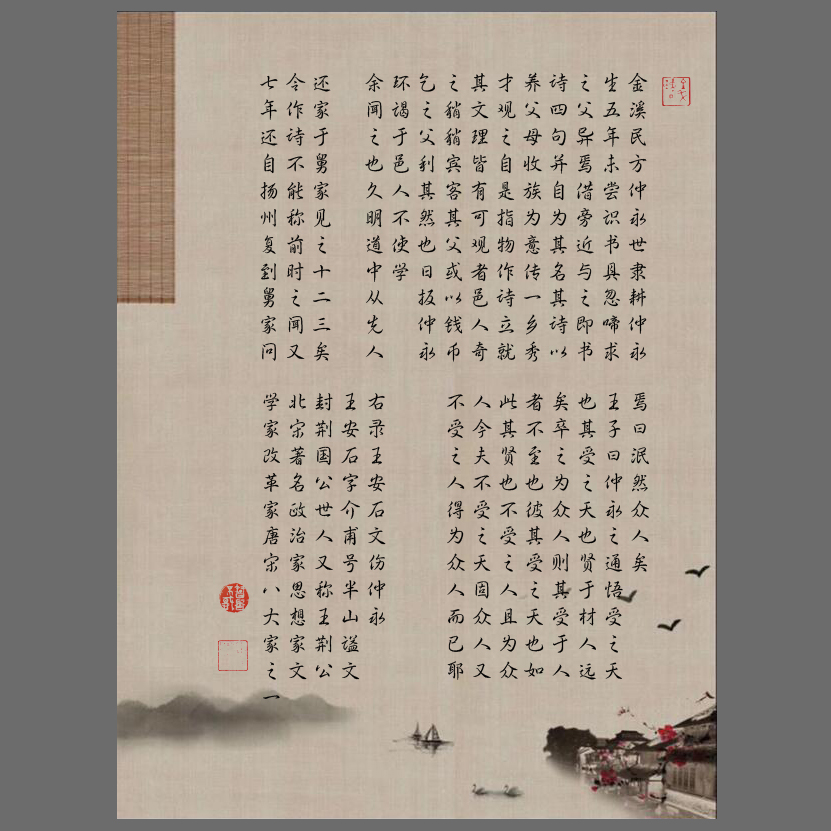 金溪民方仲永世隶耕仲永
生五年未尝识书具忽啼求
之父异焉借旁近与之即书
诗四句并自为其名其诗以
养父母收族为意传一乡秀
才观之自是指物作诗立就
其文理皆有可观者邑人奇
之稍稍宾客其父或以钱币
乞之父利其然也日扳仲永
环谒于邑人不使学
余闻之也久明道中从先人
还家于舅家见之十二三矣
令作诗不能称前时之闻又
七年还自扬州复到舅家问
焉曰泯然众人矣
王子曰仲永之通悟受之天
也其受之天也贤于材人远
矣卒之为众人则其受于人
者不至也彼其受之天也如
此其贤也不受之人且为众
人今夫不受之天固众人又
不受之人得为众人而已耶
右录王安石文伤仲永
王安石字介甫号半山谥文
封荆国公世人又称王荆公
北宋著名政治家思想家文
学家改革家唐宋八大家之一